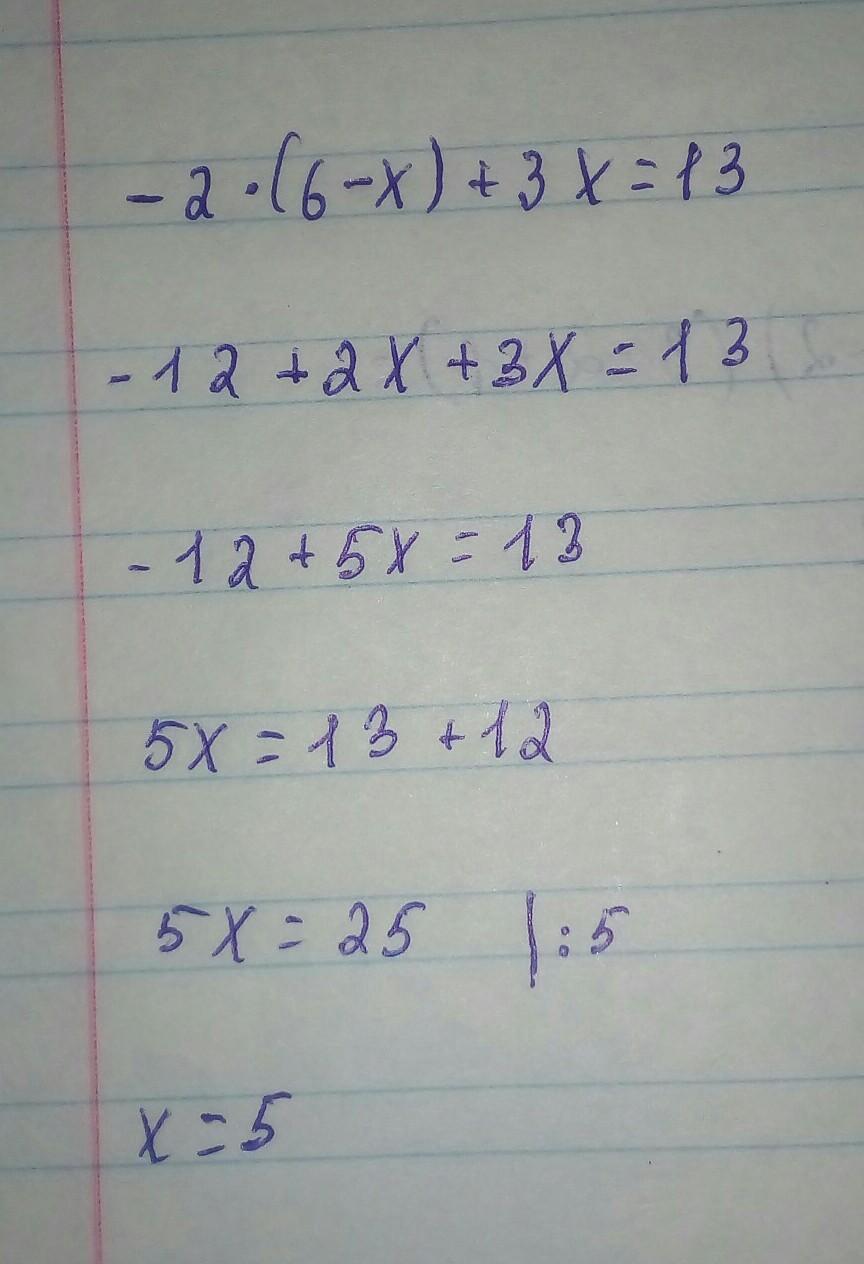 -2·(6-x)+3x=13
-12+2x+3x=13
-12+5x=13
5x=13+12
5x=25 |:5
x=5